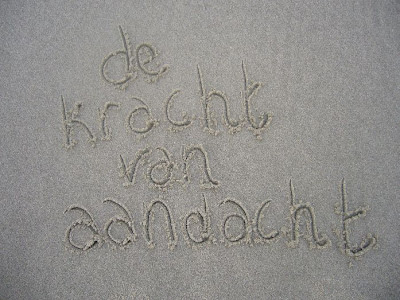 de
kracht
van
aandacht